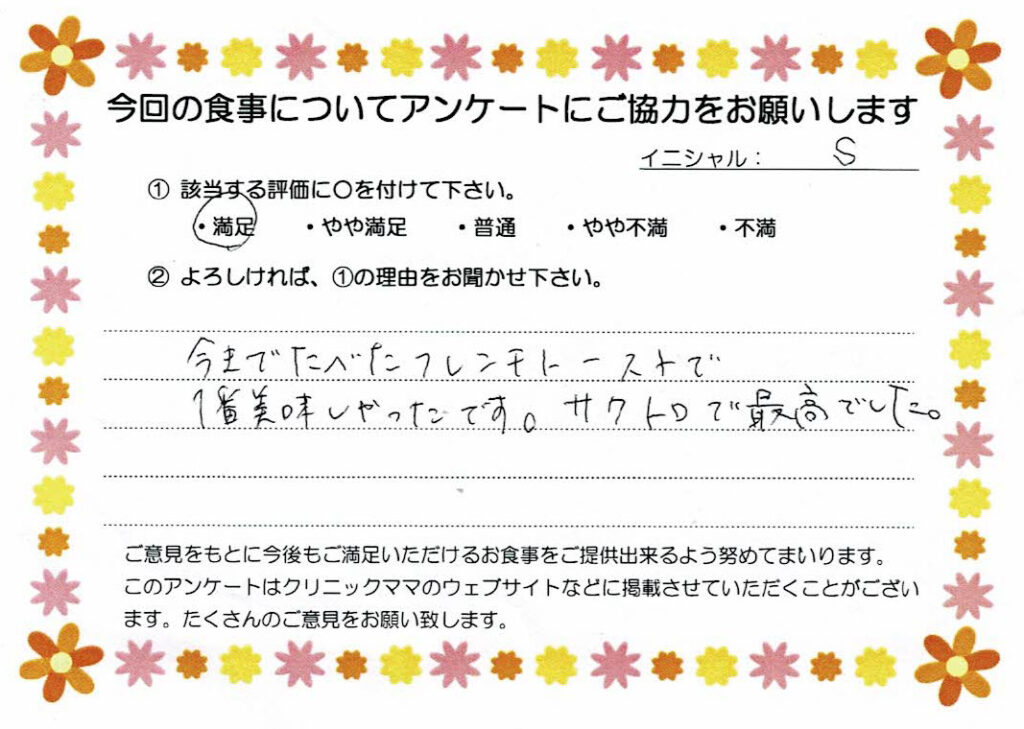 今回の食事についてアンケートにご協力をお願いします
イニシャル： S
① 該当する評価に〇を付けて下さい。
・満足 ・やや満足 ・普通 ・やや不満 ・不満
② よろしければ、①の理由をお聞かせ下さい。
今までたべたフレンチトーストで
1番美味しかったです。サクトロで最高でした。
ご意見をもとに今後もご満足いただけるお食事をご提供出来るよう努めてまいります。
このアンケートはクリニックママのウェブサイトなどに掲載させていただくことがござい
ます。たくさんのご意見をお願い致します。